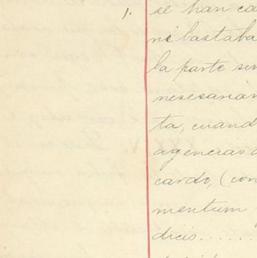 1. se han ca
ni bastaba
la parte sin
nesesarian
ta, cuand
agencias a
cardo, (con
mentum
dicis......